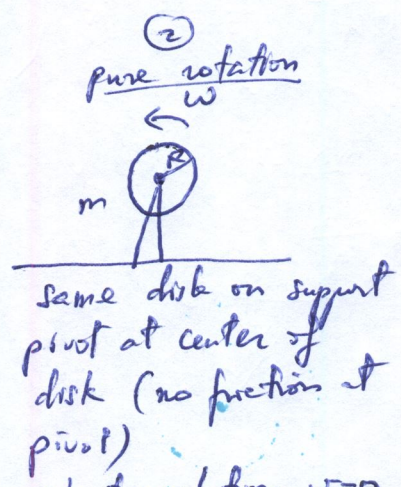 2
pure rotation
ω
R
m
same disk on support
pivot at center of
disk (no friction at
pivot)